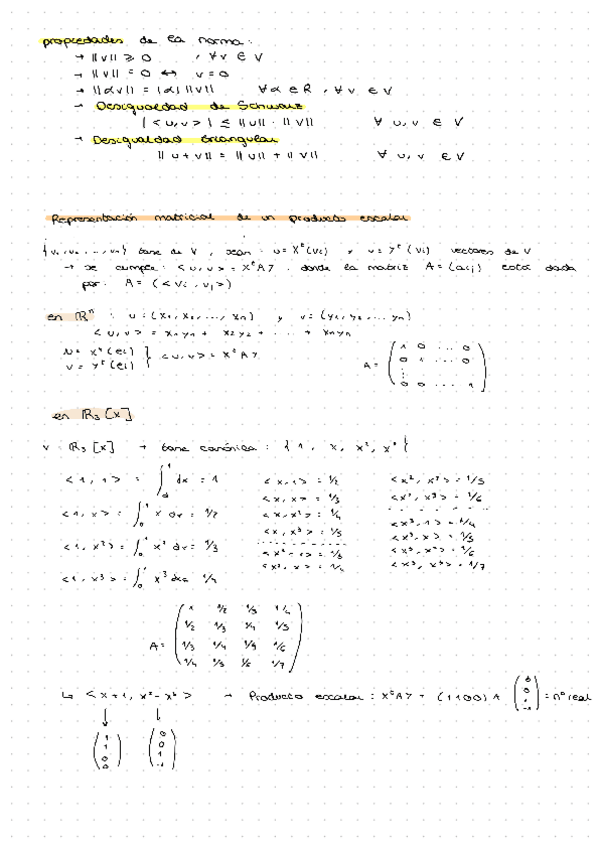 propiedades de la norma:
→ ||v|| ≥ 0 , ∀v ∈ V
→ ||v|| = 0 ↔ v = 0
→ ||αv|| = |α| ||v|| ∀α ∈ R , ∀v ∈ V
→ Desigualdad de Schwarz
|<u,v>| ≤ ||u|| · ||v|| ∀ u,v ∈ V
→ Desigualdad triangular
||u+v|| = ||u|| + ||v|| ∀ u,v ∈ V
Representación matricial de un producto escalar
{v₁,v₂,...,vₙ} base de V , sean : u = Xᵗ(vᵢ) y v = Yᵗ(vᵢ) vectores de V
→ se cumple: <u,v> = XᵗAY . donde la matriz A = (aᵢⱼ) está dada
por: A = (<vᵢ,vⱼ>)
en ℝⁿ : u = (x₁,x₂,...,xₙ) y v = (y₁,y₂,...yₙ)
<u,v> = x₁y₁ + x₂y₂ + ... + xₙyₙ
u = Xᵗ(eᵢ)
v = Yᵗ(eᵢ) } <u,v> = XᵗAY
A = (1 0 ... 0
0 1 ... 0
⋮
0 0 ... 1)
en ℝ₃[x]
v = ℝ₃[x] → base canónica : {1, x, x², x³}
<1,1> = ∫₀¹ dx = 1
<1,x> = ∫₀¹ x dx = 1/2
<1,x²> = ∫₀¹ x² dx = 1/3
<1,x³> = ∫₀¹ x³ dx = 1/4
<x,1> = 1/2
<x,x> = 1/3
<x,x²> = 1/4
<x,x³> = 1/5
<x²,1> = 1/3
<x²,x> = 1/4
<x²,x²> = 1/5
<x²,x³> = 1/6
<x³,1> = 1/4
<x³,x> = 1/5
<x³,x²> = 1/6
<x³,x³> = 1/7
A = (1 1/2 1/3 1/4
1/2 1/3 1/4 1/5
1/3 1/4 1/5 1/6
1/4 1/5 1/6 1/7)
↳ <x+1, x²-x³> → Producto escalar : XᵗAY = (1100) A (0 0 1 -1) = nº real
↓ ↓
(1 (0
1 0
0 1
0) -1)